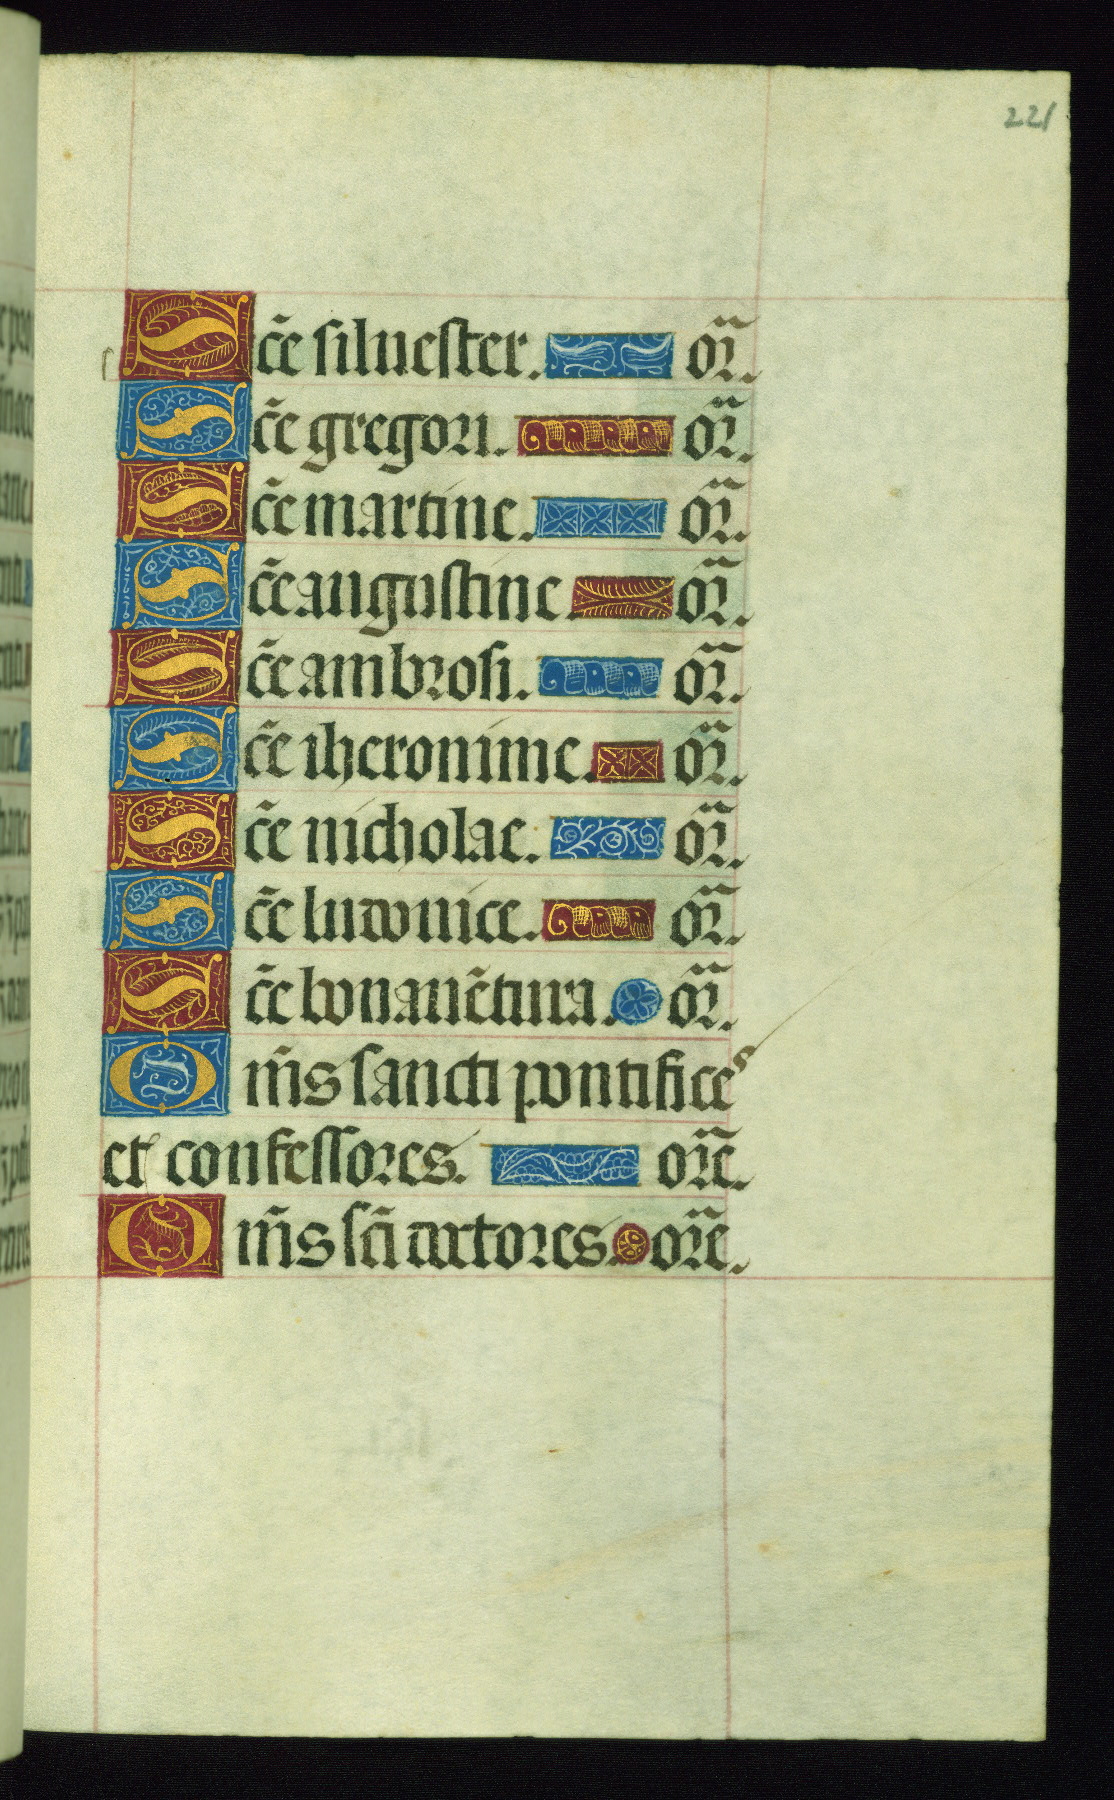 221
Sc̄e siluester. or̄.
Sc̄e gregori. or̄.
Sc̄e martine. or̄.
Sc̄e augustine. or̄.
Sc̄e ambrosi. or̄.
Sc̄e iheronime. or̄.
Sc̄e nicholae. or̄.
Sc̄e ludouice. or̄.
Sc̄e bonauētura. or̄.
Om̄s sancti pontifices
et confessores. or̄e.
Om̄s sc̄i doctores. or̄e.